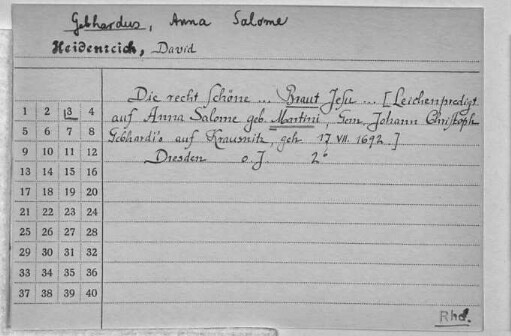 Gebhardus, Anna Salome
Heidenreich, David
Die recht schöne ... Braut Jesu ... [Leichenpredigt
auf Anna Salome geb. Martini, Gem. Johann Christoph
Gebhardi's auf Krausnitz, geh. 17 VII. 1692.]
Dresden o. J. 2°
1 2 3 4
5 6 7 8
9 10 11 12
13 14 15 16
17 18 19 20
21 22 23 24
25 26 27 28
29 30 31 32
33 34 35 36
37 38 39 40
Rhd.